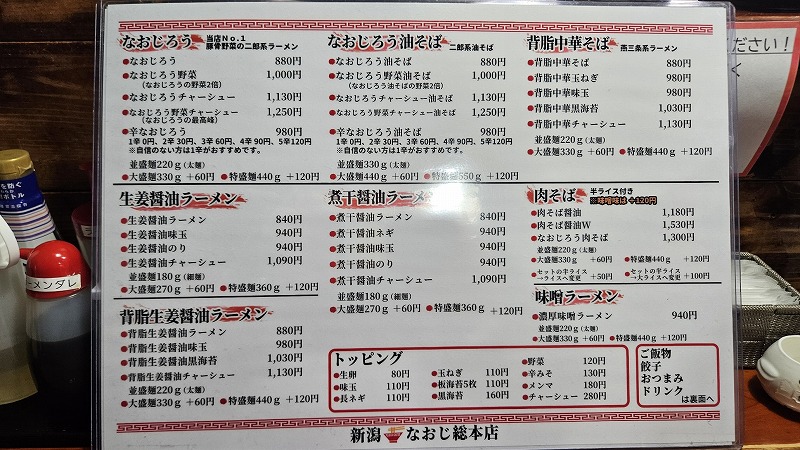 なおじろう 当店No.1 豚骨野菜の二郎系ラーメン
●なおじろう 880円
●なおじろう野菜 1,000円
(なおじろうの野菜2倍)
●なおじろうチャーシュー 1,130円
●なおじろう野菜チャーシュー 1,250円
(なおじろうの最高峰)
●辛なおじろう 980円
1辛 0円、2辛 30円、3辛 60円、4辛 90円、5辛120円
※自信のない方は1辛がおすすめです。
並盛麺220g(太麺)
●大盛麺330g +60円 ●特盛麺440g +120円
なおじろう油そば 二郎系油そば
●なおじろう油そば 880円
●なおじろう野菜油そば 1,000円
(なおじろう油そばの野菜2倍)
●なおじろうチャーシュー油そば 1,130円
●なおじろう野菜チャーシュー油そば 1,250円
●辛なおじろう油そば 980円
1辛 0円、2辛 30円、3辛 60円、4辛 90円、5辛120円
※自信のない方は1辛がおすすめです。
並盛麺330g(太麺)
●大盛麺440g +60円 ●特盛麺550g +120円
背脂中華そば 燕三条系ラーメン
●背脂中華そば 880円
●背脂中華玉ねぎ 980円
●背脂中華味玉 980円
●背脂中華黒海苔 1,030円
●背脂中華チャーシュー 1,130円
並盛麺220g(太麺)
●大盛麺330g +60円 ●特盛麺440g +120円
生姜醤油ラーメン
●生姜醤油ラーメン 840円
●生姜醤油味玉 940円
●生姜醤油のり 940円
●生姜醤油チャーシュー 1,090円
並盛麺180g(細麺)
●大盛麺270g +60円 ●特盛麺360g +120円
煮干醤油ラーメン
●煮干醤油ラーメン 840円
●煮干醤油ネギ 940円
●煮干醤油味玉 940円
●煮干醤油のり 940円
●煮干醤油チャーシュー 1,090円
並盛麺180g(細麺)
●大盛麺270g +60円 ●特盛麺360g +120円
肉そば 半ライス付き
※味噌味は +120円
●肉そば醤油 1,180円
●肉そば醤油W 1,530円
●なおじろう肉そば 1,300円
並盛麺220g(太麺)
●大盛麺330g +60円 ●特盛麺440g +120円
●セットの半ライス→ライスへ変更 +50円 ●セットの半ライス→大ライスへ変更 +100円
背脂生姜醤油ラーメン
●背脂生姜醤油ラーメン 880円
●背脂生姜醤油味玉 980円
●背脂生姜醤油黒海苔 1,030円
●背脂生姜醤油チャーシュー 1,130円
並盛麺220g(太麺)
●大盛麺330g +60円 ●特盛麺440g +120円
味噌ラーメン
●濃厚味噌ラーメン 940円
並盛麺220g(太麺)
●大盛麺330g +60円 ●特盛麺440g +120円
トッピング
●生卵 80円 ●玉ねぎ 110円 ●野菜 120円
●味玉 110円 ●板海苔5枚 110円 ●辛みそ 130円
●長ネギ 110円 ●黒海苔 160円 ●メンマ 180円
●チャーシュー 280円
ご飯物
餃子
おつまみ
ドリンク
は裏面へ
新潟 なおじ総本店
ださい!
く
を防ぐ
ボトル
ーメンダレ